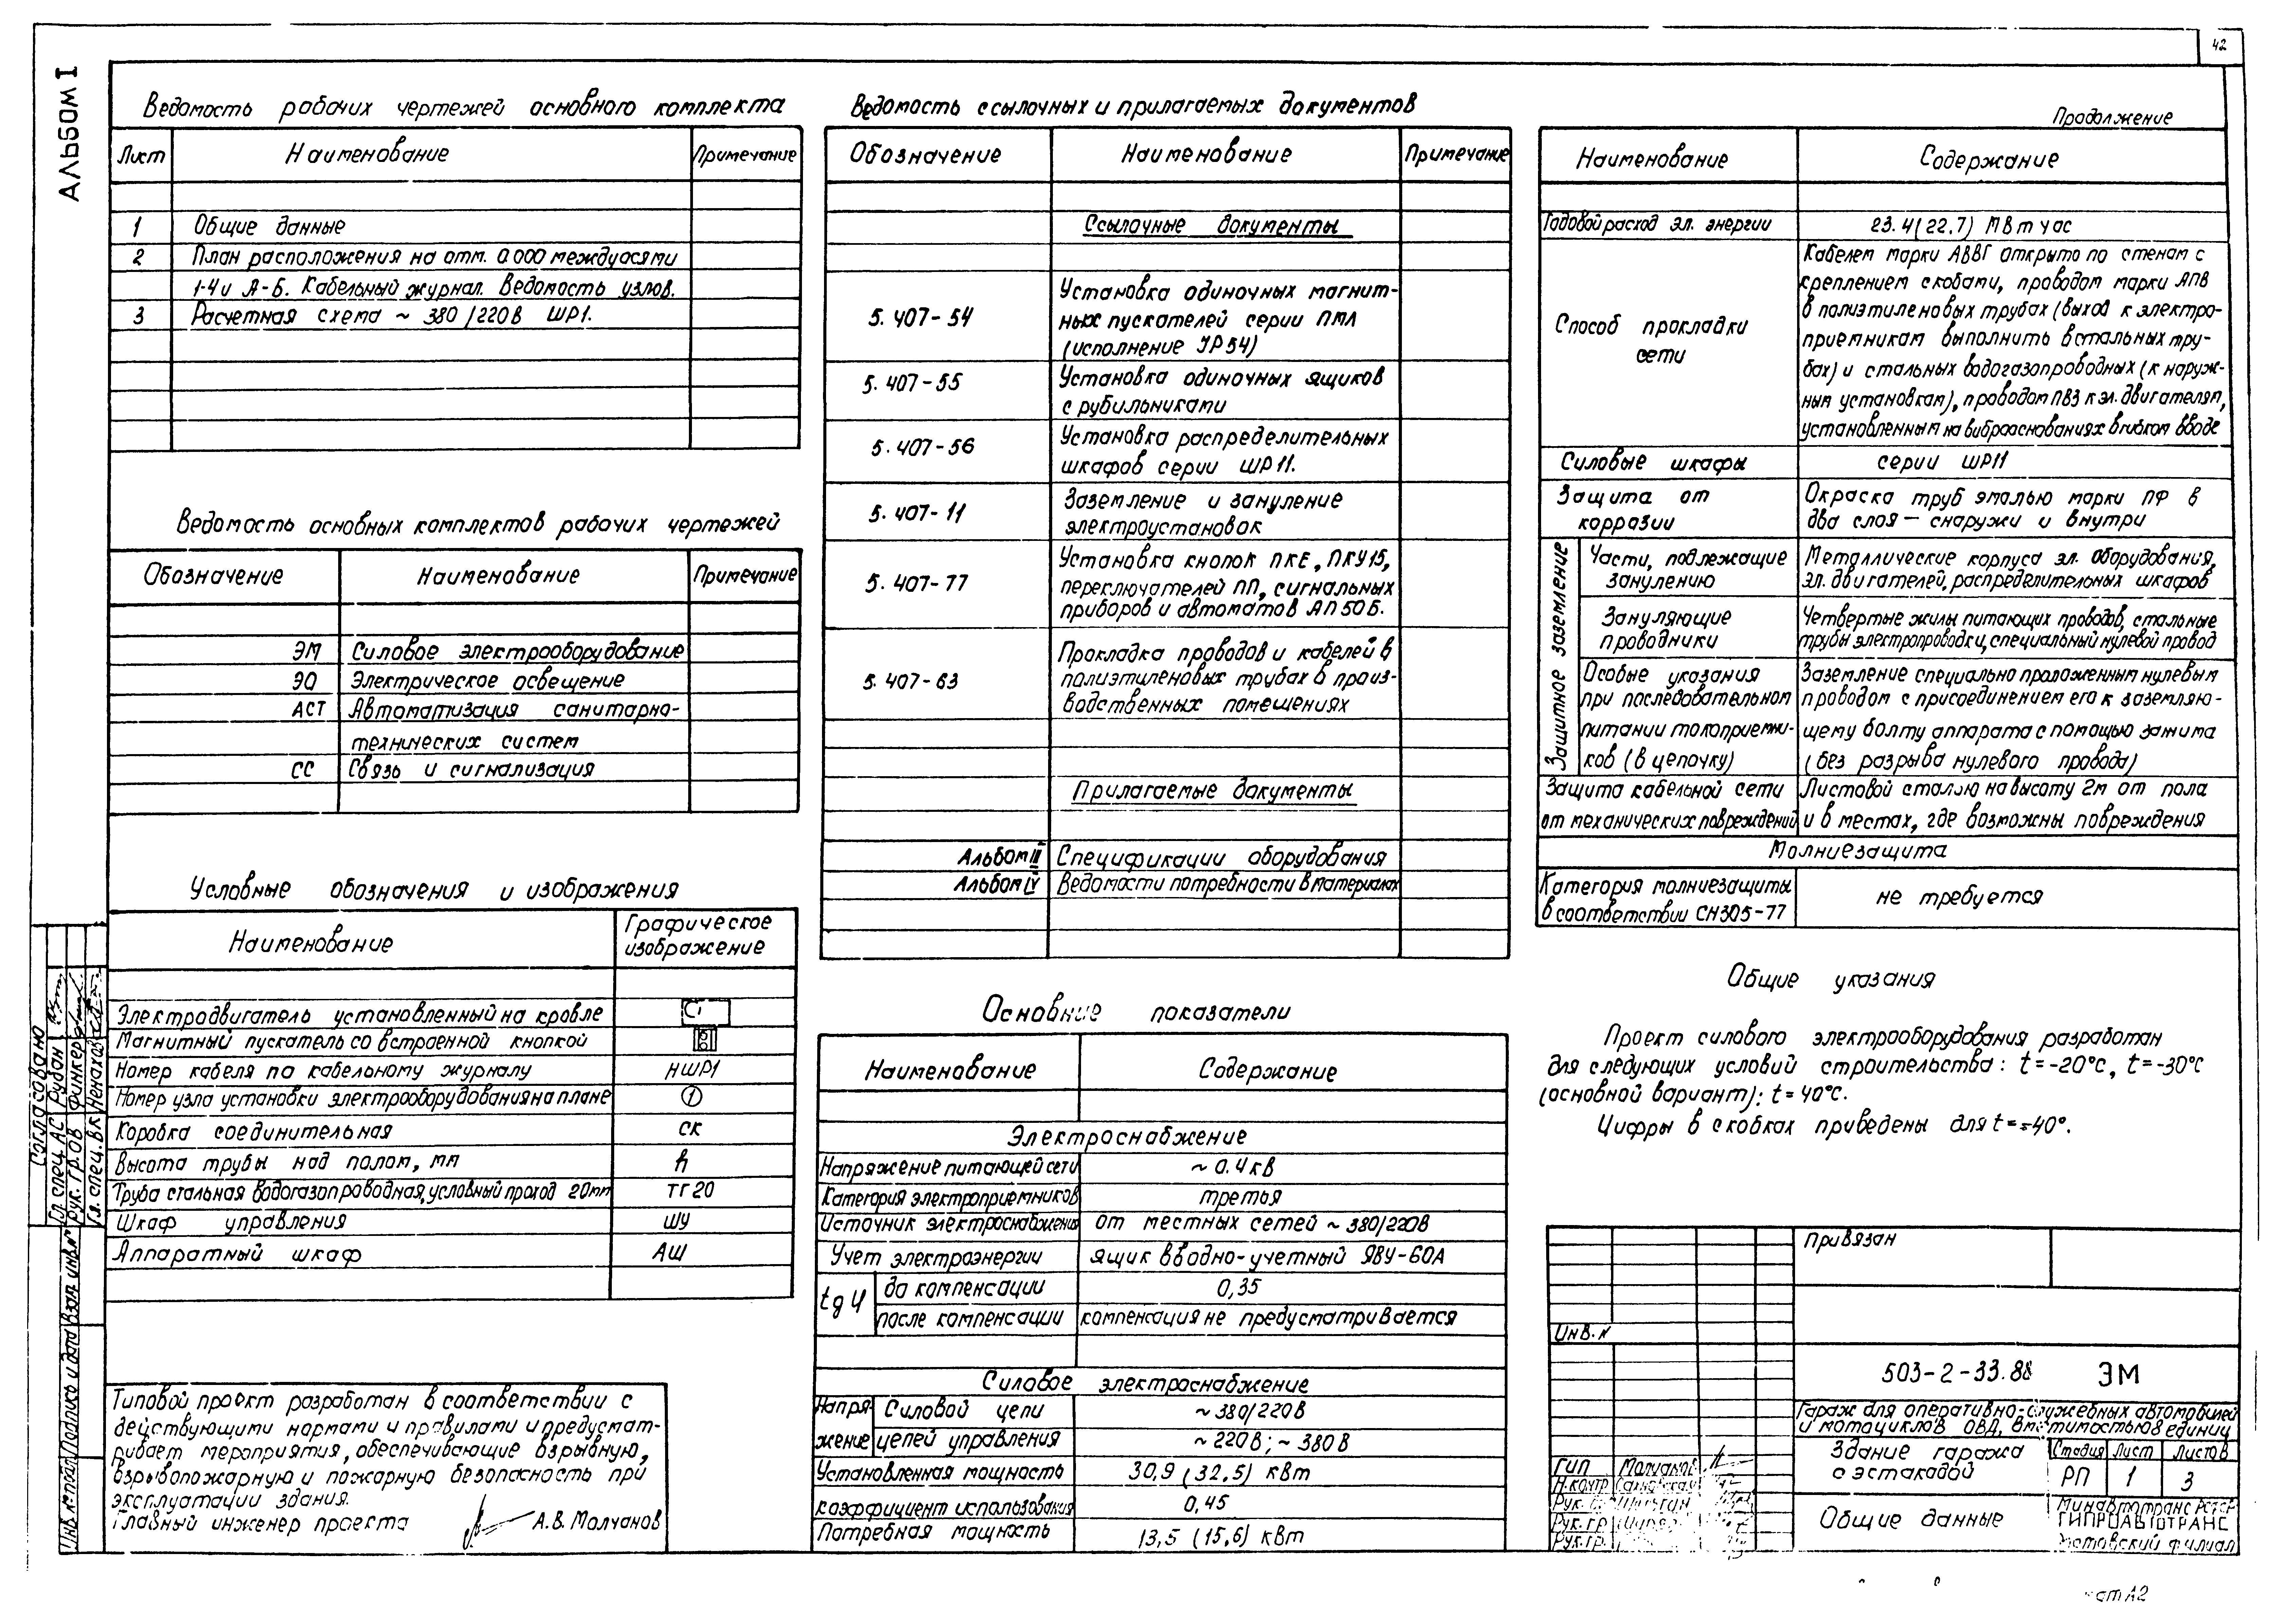 42
Альбом I
Ведомость рабочих чертежей основного комплекта
Лист Наименование Примечание
1 Общие данные
2 План расположения на отм. 0.000 между осями
1-4 и А-Б. Кабельный журнал. Ведомость узлов.
3 Расчетная схема ~ 380/220В ШР1.
Ведомость основных комплектов рабочих чертежей
Обозначение Наименование Примечание
ЭМ Силовое электрооборудование
ЭО Электрическое освещение
АСТ Автоматизация санитарно-
технических систем
СС Связь и сигнализация
Условные обозначения и изображения
Наименование Графическое
изображение
Электродвигатель установленный на кровле
Магнитный пускатель со встроенной кнопкой
Номер кабеля по кабельному журналу НШР1
Номер узла установки электрооборудования на плане 1
Коробка соединительная СК
Высота трубы над полом, мм h
Труба стальная водогазопроводная, условный проход 20мм ТГ20
Шкаф управления ШУ
Аппаратный шкаф АШ
Типовой проект разработан в соответствии с
действующими нормами и правилами и предусмат-
ривает мероприятия, обеспечивающие взрывную,
взрывопожарную и пожарную безопасность при
эксплуатации здания.
Главный инженер проекта А.В. Молчанов
Ведомость ссылочных и прилагаемых документов
Обозначение Наименование Примечание
Ссылочные документы
5.407-54 Установка одиночных магнит-
ных пускателей серии ПМЛ
(исполнение IP54)
5.407-55 Установка одиночных ящиков
с рубильниками
5.407-56 Установка распределительных
шкафов серии ШР11.
5.407-11 Заземление и зануление
электроустановок
5.407-77 Установка кнопок ПКЕ, ПКУ15,
переключателей ПП, сигнальных
приборов и автоматов АП50Б.
5.407-63 Прокладка проводов и кабелей в
полиэтиленовых трубах в произ-
водственных помещениях
Прилагаемые документы
Альбом III Спецификации оборудования
Альбом IV Ведомости потребности в материалах
Основные показатели
Наименование Содержание
Электроснабжение
Напряжение питающей сети ~ 0.4 кВ
Категория электроприемников третья
Источник электроснабжения от местных сетей ~ 380/220В
Учет электроэнергии ящик вводно-учетный ЯВУ-60А
tg φ до компенсации 0,35
после компенсации компенсация не предусматривается
Силовое электроснабжение
Напря-
жение
Силовой цепи ~ 380/220В
цепей управления ~ 220В; ~ 380В
Установленная мощность 30,9 (32,5) кВт
коэффициент использования 0,45
Потребная мощность 13,5 (15,6) кВт
Продолжение
Наименование Содержание
Годовой расход эл. энергии 23.4(22,7) МВт час
Способ прокладки
сети
Кабелем марки АВВГ открыто по стенам с
креплением скобами, проводом марки АПВ
в полиэтиленовых трубах (выход к электро-
приемникам выполнить в стальных тру-
бах) и стальных водогазопроводных (к наруж-
ным установкам), проводом ПВ3 к эл. двигателям,
установленным на виброоснованиях в гибком вводе
Силовые шкафы серии ШР11
Защита от
коррозии
Окраска труб эмалью марки ПФ в
два слоя — снаружи и внутри
Защитное заземление
Части, подлежащие
занулению
Металлические корпуса эл. оборудования,
эл. двигателей, распределительных шкафов
Зануляющие
проводники
Четвертые жилы питающих проводов, стальные
трубы электропроводки, специальный нулевой провод
Особые указания
при последовательном
питании токоприемни-
ков (в цепочку)
Заземление специально проложенным нулевым
проводом с присоединением его к заземляю-
щему болту аппарата с помощью зажима
(без разрыва нулевого провода)
Защита кабельной сети
от механических повреждений
Листовой сталью на высоту 2м от пола
и в местах, где возможны повреждения
Молниезащита
Категория молниезащиты
в соответствии СН305-77
не требуется
Общие указания
Проект силового электрооборудования разработан
для следующих условий строительства: t=-20°с, t=-30°с
(основной вариант); t=40°с.
Цифры в скобках приведены для t=-40°.
Согласовано
Гл. спец. АС Рудан
Рук. гр. ОВ Финкер
Гл. спец. ВК Ненахов
Инв. № подл. Подпись и дата Взам. инв. №
Привязан
Инв. №
503-2-33.88 ЭМ
Гараж для оперативно-служебных автомобилей
и мотоциклов ОВД, вместимостью 8 единиц
Здание гаража
с эстакадой
Стадия Лист Листов
РП 1 3
Общие данные
Минавтотранс РСФСР
ГИПРОАВТОТРАНС
Ростовский филиал
ГИП Молчанов
Н.контр
Рук.
Рук. гр.
Рук. гр.
мат А2